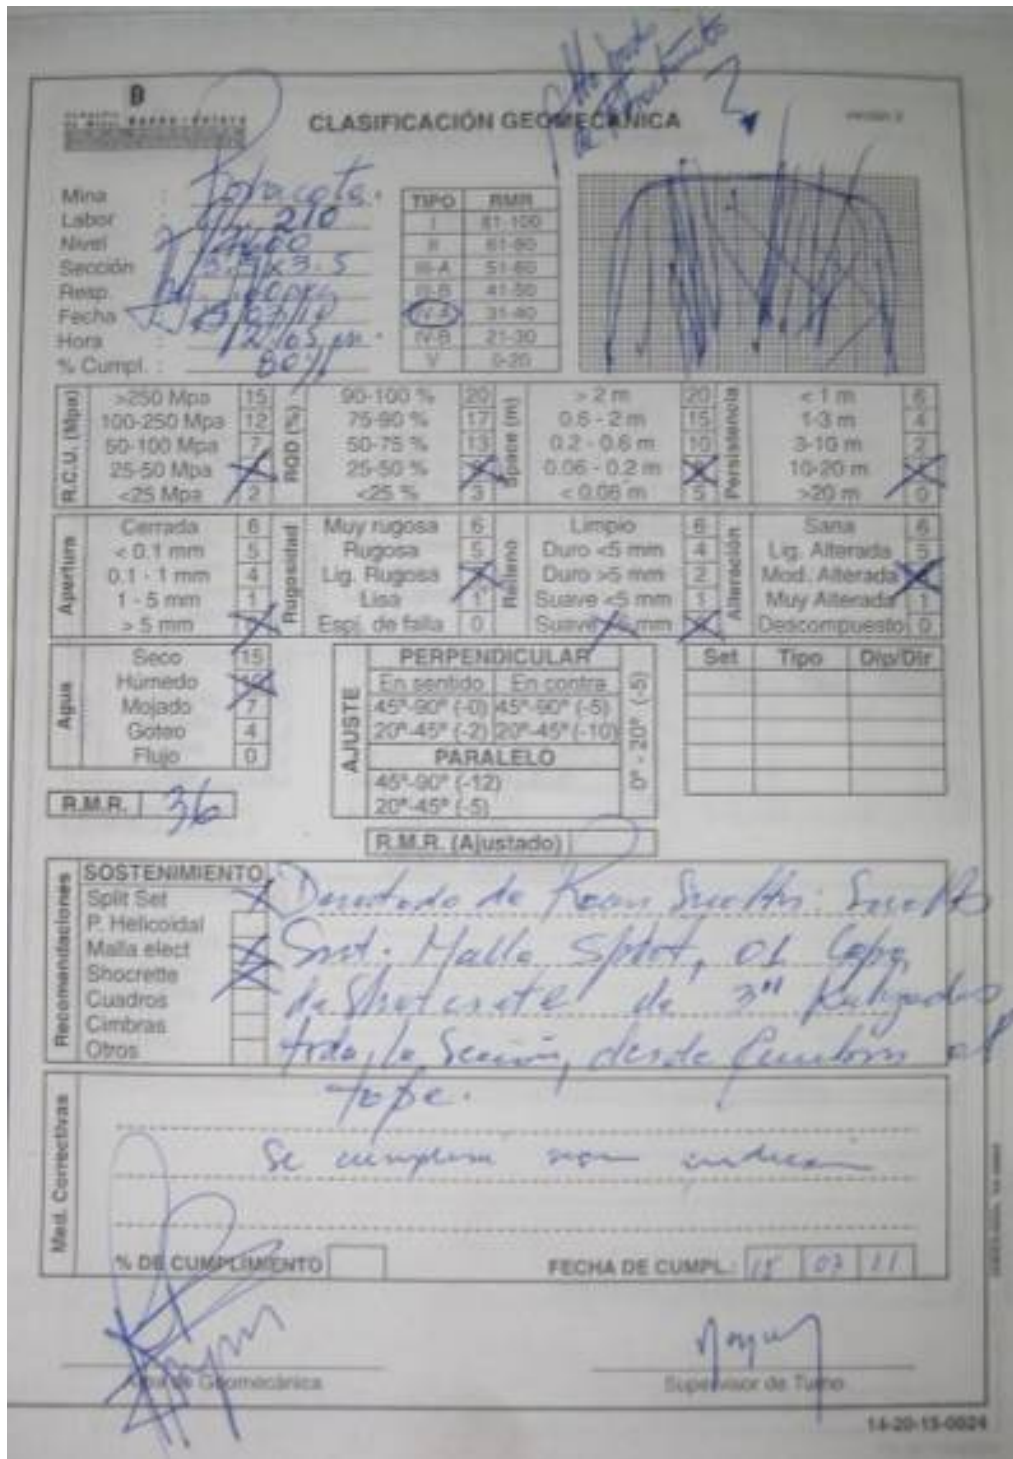 CLASIFICACIÓN GEOMECÁNICA
Mina :
Labor : 210
Nivel : 4400
Sección : 3.5x3.5
Resp.
Fecha
Hora : 2:05 pm.
% Cumpl. : 80%
TIPO RMR
I 81-100
II 61-80
III-A 51-60
III-B 41-50
IV-A 31-40
IV-B 21-30
V 0-20
R.C.U. (Mpa)
>250 Mpa 15
100-250 Mpa 12
50-100 Mpa 7
25-50 Mpa
<25 Mpa 2
RQD (%)
90-100 % 20
75-90 % 17
50-75 % 13
25-50 %
<25 % 3
Space (m)
> 2 m 20
0.6 - 2 m 15
0.2 - 0.6 m 10
0.06 - 0.2 m
< 0.06 m 5
Persistencia
< 1 m 6
1-3 m 4
3-10 m 2
10-20 m
>20 m 0
Apertura
Cerrada 6
< 0.1 mm 5
0.1 - 1 mm 4
1 - 5 mm 1
> 5 mm
Rugosidad
Muy rugosa 6
Rugosa 5
Lig. Rugosa
Lisa 1
Espj. de falla 0
Relleno
Limpio 6
Duro <5 mm 4
Duro >5 mm 2
Suave <5 mm 1
Suave mm
Alteración
Sana 6
Lig. Alterada 5
Mod. Alterada
Muy Alterada 1
Descompuesto 0
Agua
Seco 15
Húmedo 10
Mojado 7
Goteo 4
Flujo 0
AJUSTE
PERPENDICULAR
En sentido En contra
45°-90° (-0) 45°-90° (-5)
20°-45° (-2) 20°-45° (-10)
PARALELO
45°-90° (-12)
20°-45° (-5)
0° - 20° (-5)
Set Tipo Dip/Dir
R.M.R. 36
R.M.R. (Ajustado)
Recomendaciones
SOSTENIMIENTO
Split Set
P. Helicoidal
Malla elect
Shocrette
Cuadros
Cimbras
Otros
de
Sost. Malla Split, 01 Capa
de Shotcrete de 3"
toda la Sección, desde al
tope.
Med. Correctivas
Se
% DE CUMPLIMIENTO
FECHA DE CUMPL.: 15 03 11
Area de Geomecánica
Supervisor de Turno
14-20-15-0024